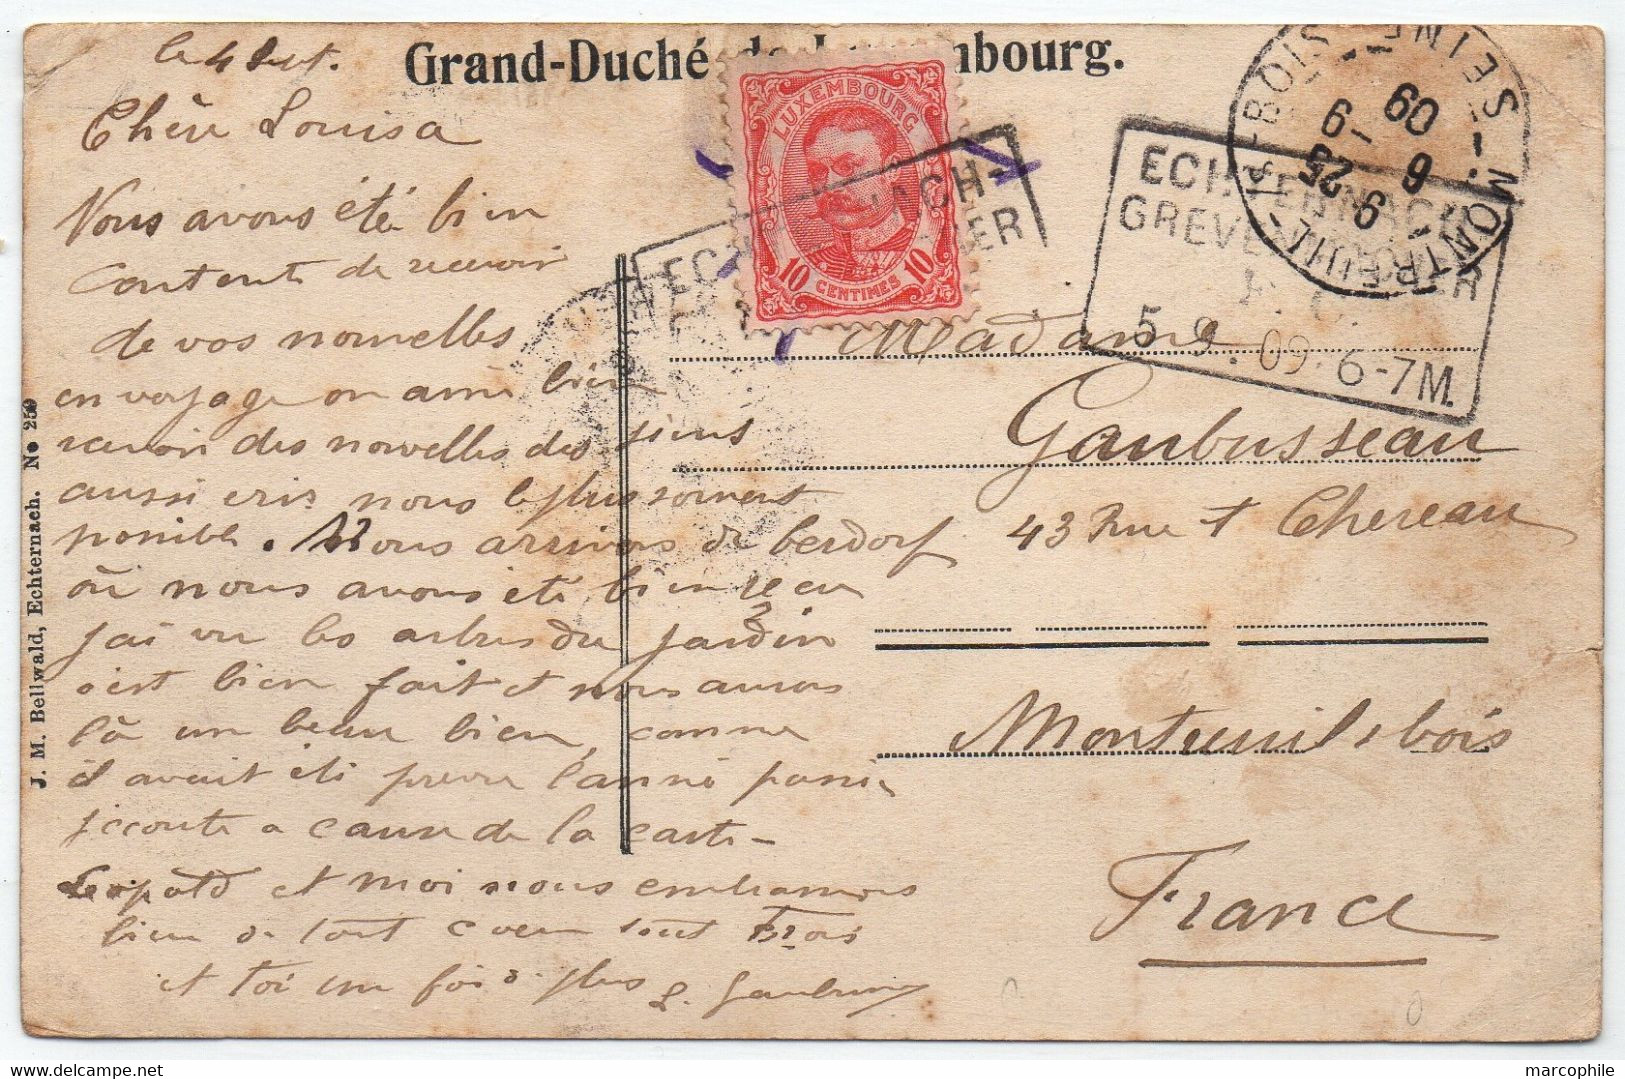 Grand-Duché de Luxembourg.
le 4
Chère Louisa
Nous avons été bien
contents de recevoir
de vos nouvelles
en voyage on aime bien
recevoir des nouvelles des siens
aussi nous le plus souvent
possible. Nous arrivons de berdorf
où nous avons été bien reçu
j'ai vu les arbres du jardin
c'est bien fait et nous avions
là un beau bien, comme
il avait été prevu l'anné
a cause de la carte
Leopold et moi nous embrassons
bien de tout coeur tout Trois
et toi une fois de plus
LUXEMBOURG
10 CENTIMES 10
ECHTERNACH-
GREVENMACHER
5.9.09.6-7M.
MONTREUIL-S-BOIS
SEINE
9 25
6 -9
09
Madame
Gaubusseau
43 Rue Chereau
Montreuil s bois
France
J. M. Bellwald, Echternach. No 259
marcophile